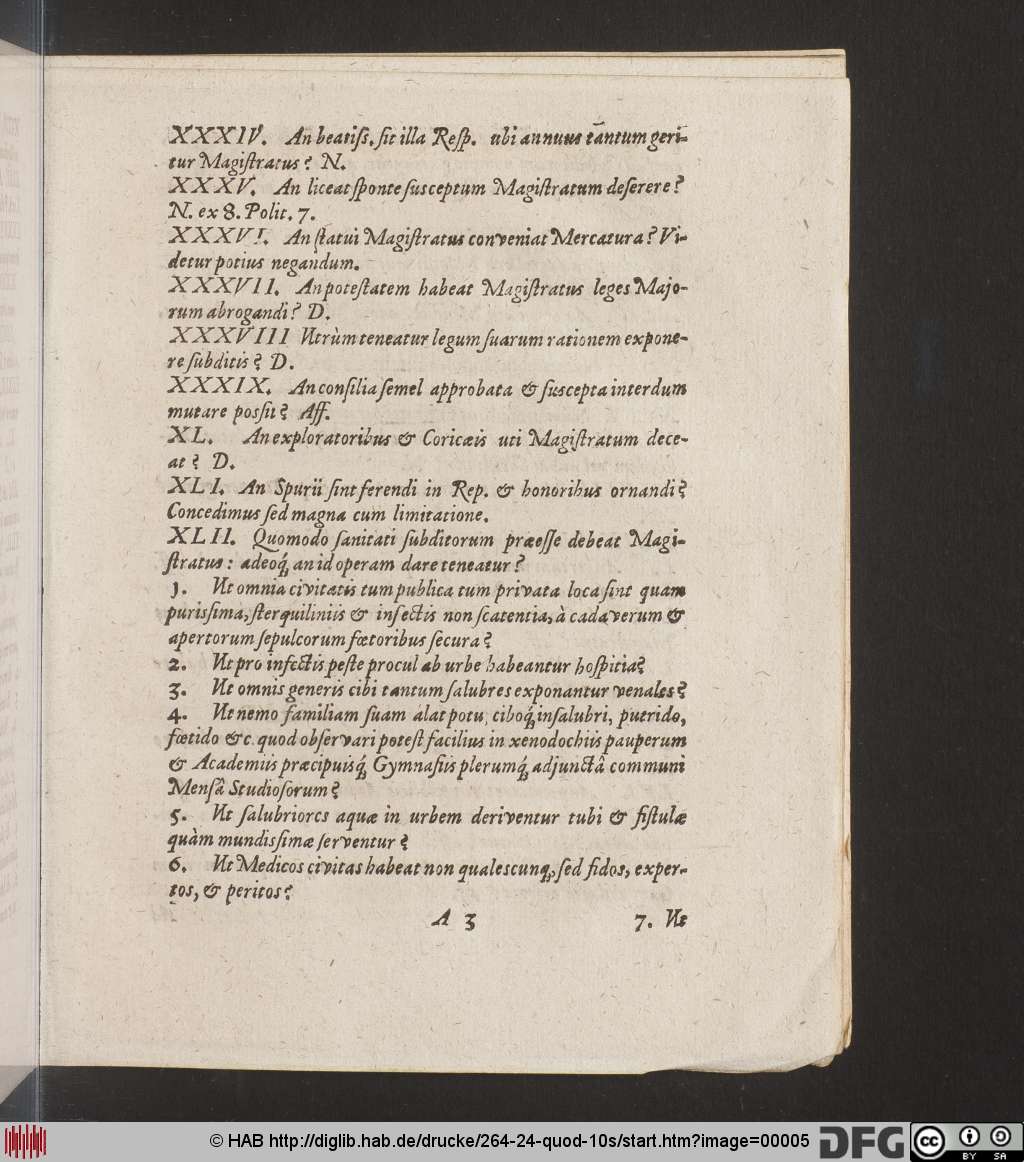 XXXIV. An beatiſs. ſit illa Reſp. ubi annuus tãntum geri-
tur Magiſtratus? N.
XXXV. An liceat ſponte ſusceptum Magiſtratum deſerere?
N. ex 8. Polit. 7.
XXXVI. An ſtatui Magiſtratus conveniat Mercatura? Vi-
detur potius negandum.
XXXVII. An poteſtatem habeat Magiſtratus leges Majo-
rum abrogandi? D.
XXXVIII Utrùm teneatur legum ſuarum rationem expone-
re ſubditis? D.
XXXIX. An conſilia ſemel approbata & ſuscepta interdum
mutare poſsit? Aff.
XL. An exploratoribus & Coricæis uti Magiſtratum dece-
at? D.
XLI. An Spurii ſint ferendi in Rep. & honoribus ornandi?
Concedimus ſed magna cum limitatione.
XLII. Quomodo ſanitati ſubditorum præeſſe debeat Magi-
ſtratus: adeoq́; an id operam dare teneatur?
1. Ut omnia civitatis tum publica tum privata loca ſint quam
puriſsima, ſterquiliniis & inſectis non ſcatentia, à cadaverum &
apertorum ſepulcorum fœtoribus ſecura?
2. Ut pro infectis peſte procul ab urbe habeantur hoſpitia?
3. Ut omnis generis cibi tantum ſalubres exponantur venales?
4. Ut nemo familiam ſuam alat potu, ciboq́; inſalubri, putrido,
fœtido &c. quod obſervari poteſt facilius in xenodochiis pauperum
& Academiis præcipuisq́; Gymnaſiis plerumq́; adjunctâ communi
Menſâ Studioſorum?
5. Ut ſalubriores aquæ in urbem deriventur tubi & fiſtulæ
quàm mundiſsimæ ſerventur?
6. Ut Medicos civitas habeat non qualescunq; ſed fidos, exper-
tos, & peritos?
A 3 7. Ut
© HAB http://diglib.hab.de/drucke/264-24-quod-10s/start.htm?image=00005
DFG
cc BY SA